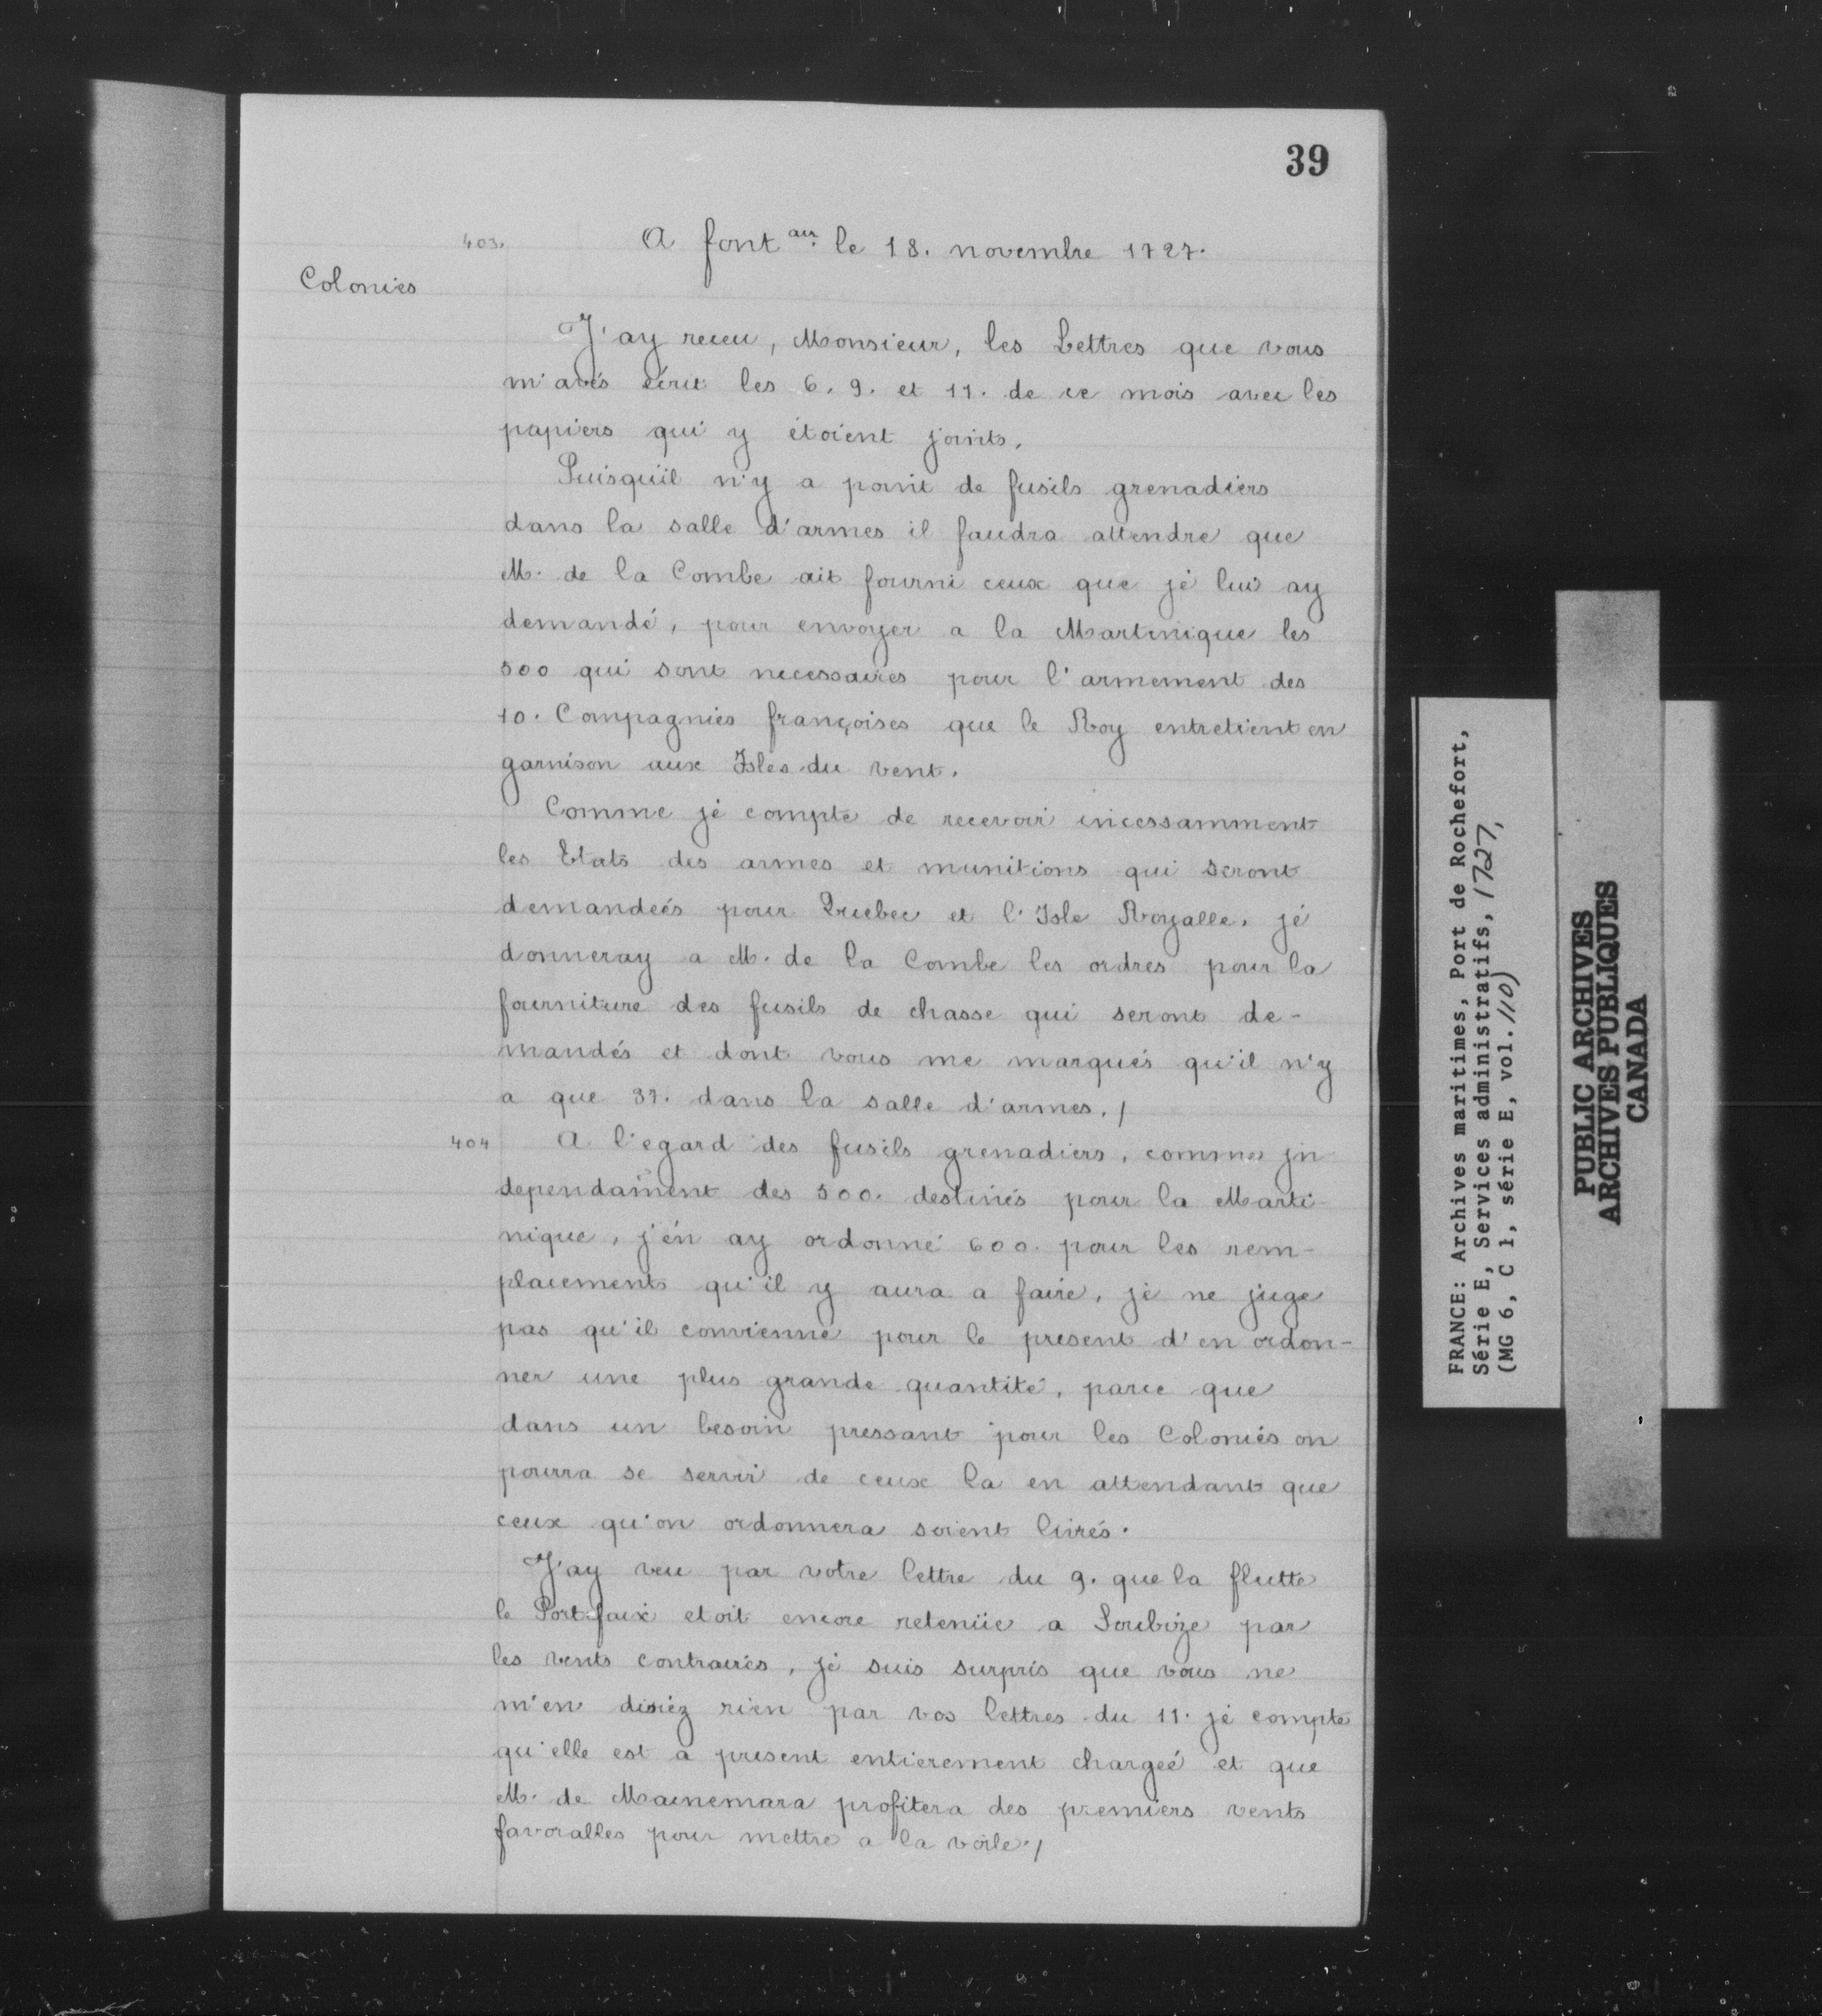 39
403.
A fontau. le 18. novembre 1727.
Colonies
J'ay receu, Monsieur, les Lettres que vous
m'avés écrit les 6. 9. et 11. de ce mois avec les
papiers qui y étoient joints.
Puisqu'il n'y a point de fusils grenadiers
dans la salle d'armes il faudra attendre que
M. de la Combe ait fourni ceux que je lui ay
demandé, pour envoyer a la Martinique les
500 qui sont necessaires pour l'armement des
10. Compagnies françoises que le Roy entretient en
garnison aux Isles du vent.
Comme je compte de recevoir incessamment
les Etats des armes et munitions qui seront
demandeés pour Quebec et l'Isle Royalle, je
donneray a M. de la Combe les ordres pour la
fourniture des fusils de chasse qui seront de-
mandés et dont vous me marqués qu'il n'y
a que 37. dans la salle d'armes./
404
A l'egard des fusils grenadiers, comme jn
dependament des 500. destinés pour la Marti
nique, j'en ay ordonné 600. pour les rem-
placements qu'il y aura a faire, je ne juge
pas qu'il convienne pour le present d'en ordon-
ner une plus grande quantité, parce que
dans un besoin pressant pour les Colonies on
pourra se servir de ceux la en attendant que
ceux qu'on ordonnera soient livrés.
J'ay veu par votre lettre du 9. que la flutte
le Portefaix etoit encore retenüe a Soubize par
les vents contraires, je suis surpris que vous ne
m'en disiéz rien par vos lettres du 11. je compte
qu'elle est a present entierement chargeé et que
M. de Macnemara profitera des premiers vents
favorables pour mettre a la voile./
FRANCE: Archives maritimes, Port de Rochefort,
Série E, Services administratifs, 1727,
(MG 6, C 1, série E, vol. 110)
PUBLIC ARCHIVES
ARCHIVES PUBLIQUES
CANADA